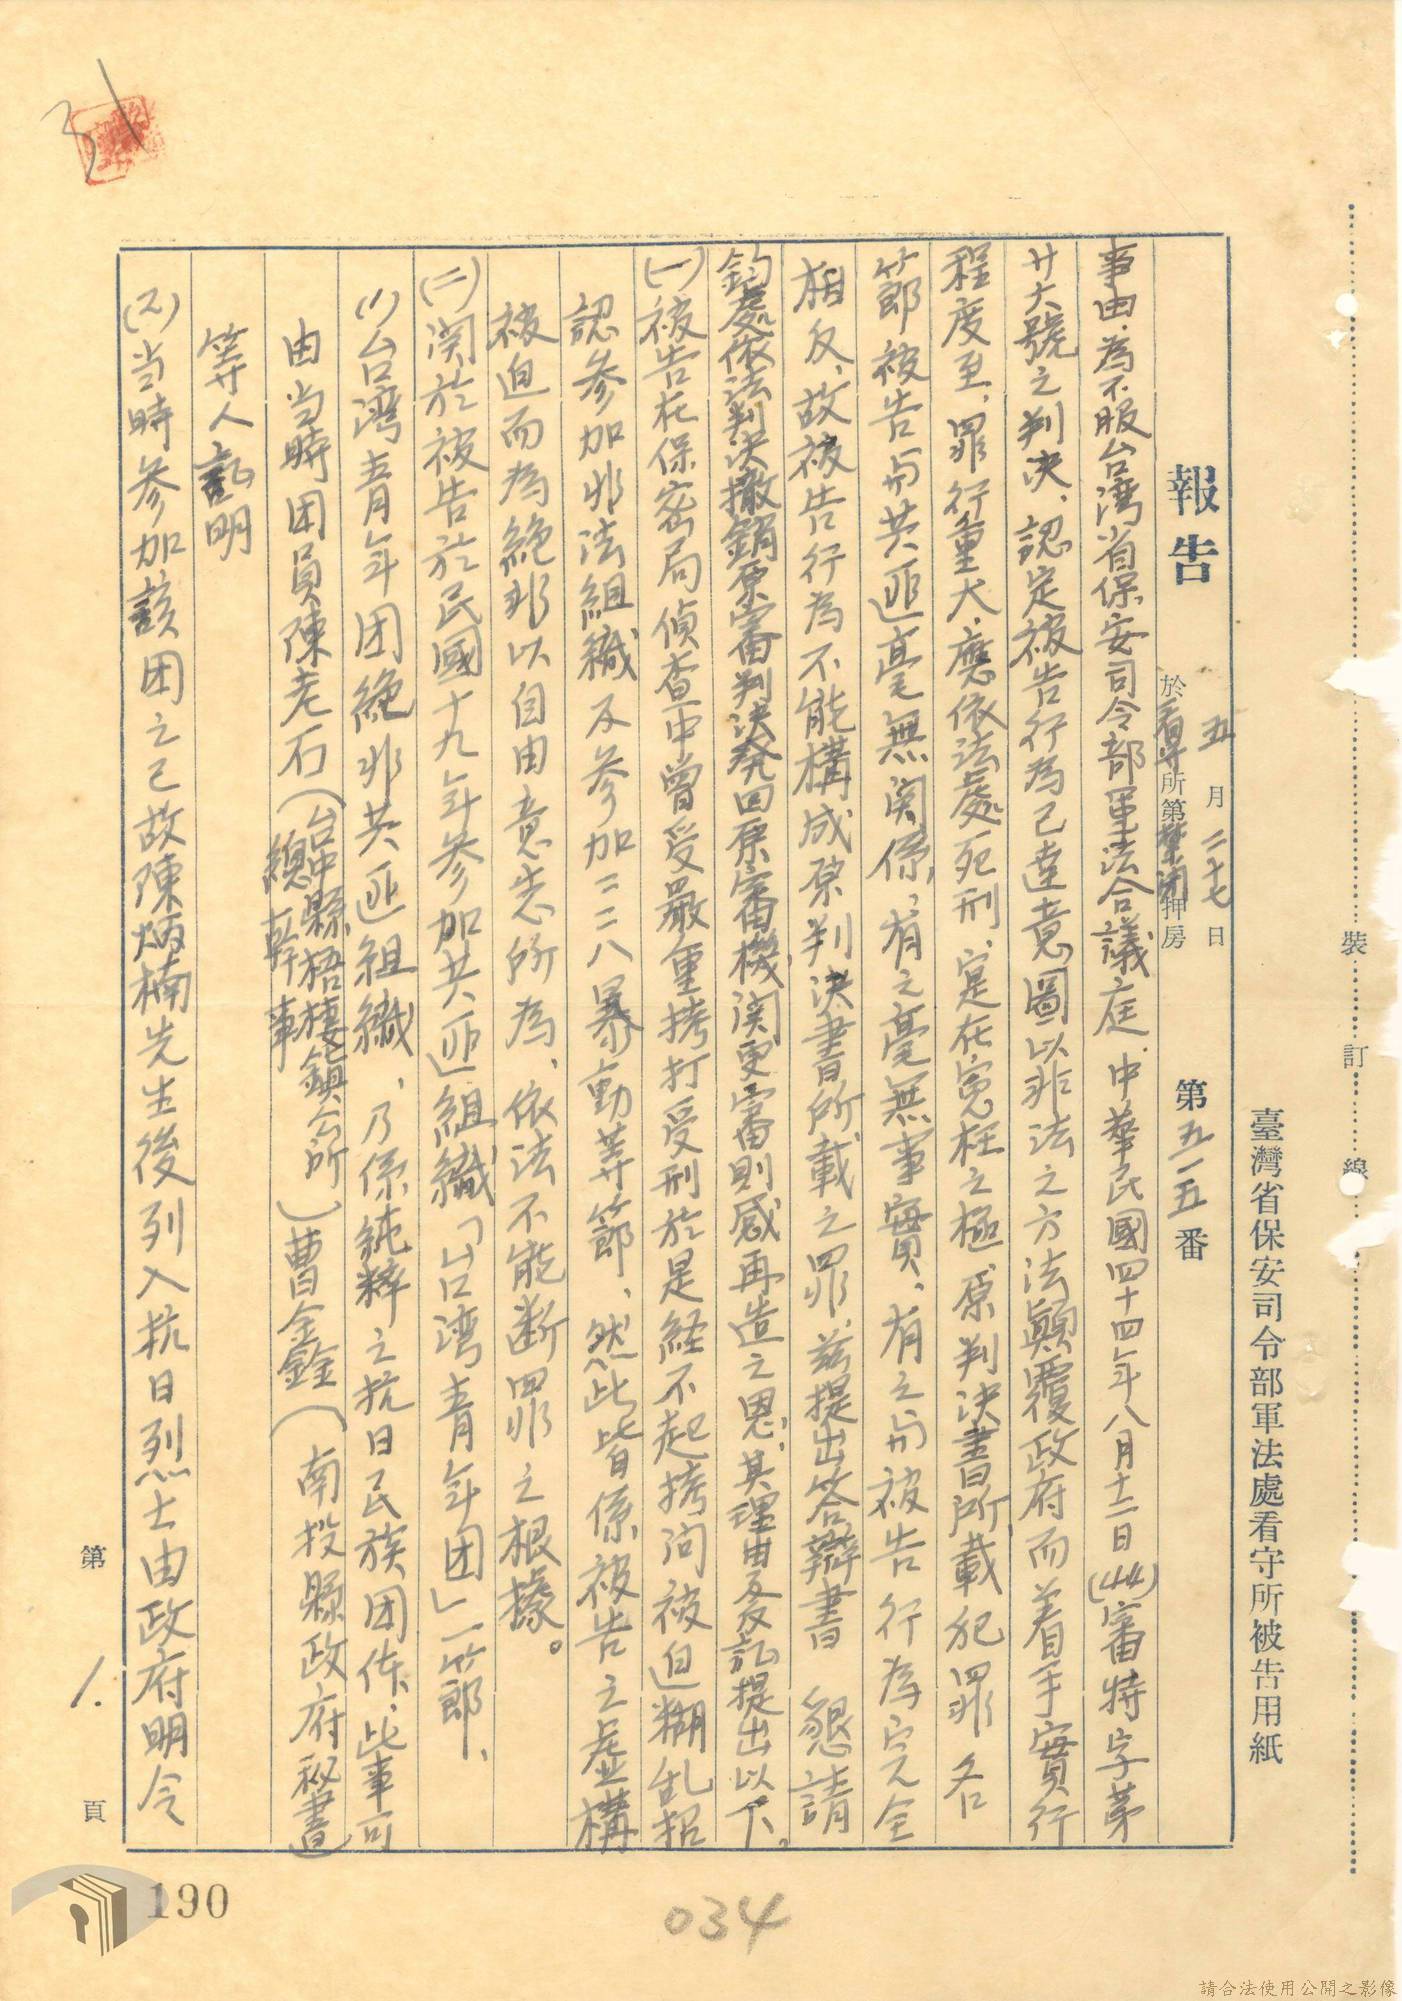 臺灣省保安司令部軍法處看守所被告用紙
報告
五月二十七日
於看守所第禁閉押房
第五一五番
事由、為不服台湾省保安司令部軍法合議庭、中華民國四十四年八月十二日(44)審特字第
廿六號之判決、認定被告行為已達意圖以非法之方法顛覆政府而着手實行
程度至、罪行重大、應依法處死刑、寔在冤枉之極、原判決書所載犯罪各
節被告与共匪毫無関係、有之毫無事實、有之与被告行為完全
相反、故被告行為不能構成原判決書所載之罪、茲提出答辯書 懇請
鈞處依法判決撤銷原審判決発回原審機関更審則感再造之恩、其理由爰訟提出以下、
(一)被告在保密局偵查中曾受嚴重拷打受刑於是経不起拷问被迫糊乱招
認参加非法組織及参加二二八暴動等節、然此皆係被告之虛構
被迫而為絶非以自由意志所為、依法不能断罪之根據。
(二)関於被告於民國十九年参加共匪組織「台湾青年团」一節、
(1)台湾青年团絶非共匪組織、乃係純粹之抗日民族团体、此事可
由当時团員陳老石(台中縣梧棲鎮公所總幹事)曹金銓(南投縣政府秘書)
等人証明
(2)当時参加該团之已故陳炳楠先生後列入抗日烈士由政府明令
第1.頁
裝
訂
線
31
190
034
請合法使用公開之影像